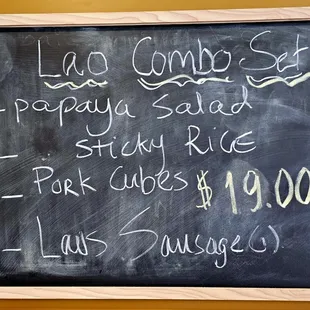 Lao Combo Set
- papaya Salad
- sticky RICE
- Pork Cubes $19.00
- Laos Sausage (1)